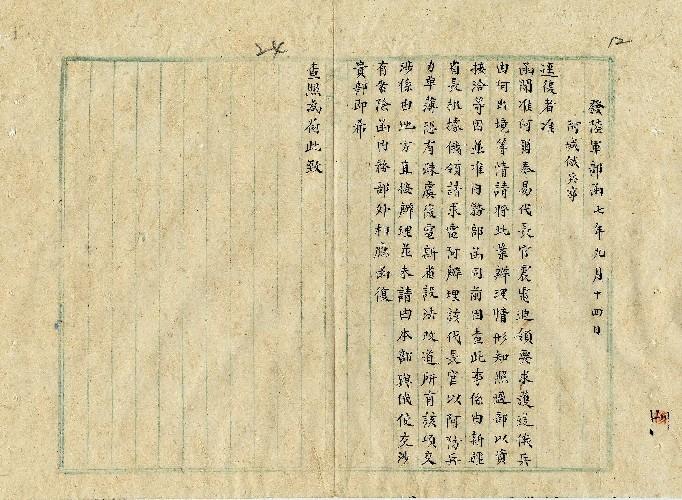 12
24
發陸軍部函七年九月十四日
阿城俄兵事
逕復者准
函開准阿爾泰易代長官震電波領要求護送俄兵
由何出境等情請將此案辦理情形知照過部以資
接洽等因並准內務部函同前因查此事係由新疆
省長祇據俄領請求電阿辦理該代長官以阿防兵
力單薄恐有疎虞復電新省設法改道所有該項交
涉係由地方直接辦理並未請由本部與俄使交涉
有案除函內務部外相應函復
貴部即希
查照為荷此致